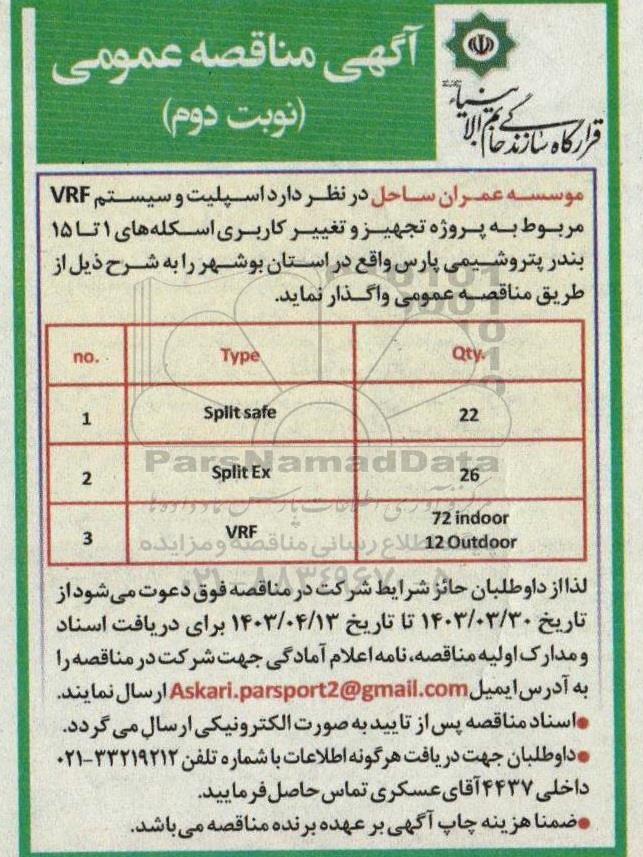 آگهی مناقصه عمومی
(نوبت دوم)
قرارگاه سازندگی خاتم الانبیاء
موسسه عمران ساحل در نظر دارد اسپلیت و سیستم VRF
مربوط به پروژه تجهیز و تغییر کاربری اسکله‌های ۱ تا ۱۵
بندر پتروشیمی پارس واقع در استان بوشهر را به شرح ذیل از
طریق مناقصه عمومی واگذار نماید.
no. Type Qty.
1 Split safe 22
2 Split Ex 26
3 VRF 72 indoor
12 Outdoor
ParsNamadData
مرکز فرآوری اطلاعات پارس نماد داده‌ها
پایگاه اطلاع رسانی مناقصه و مزایده
۰۲۱-۸۸۳۴۹۶۷۰-۵
لذا از داوطلبان حائز شرایط شرکت در مناقصه فوق دعوت می‌شود از
تاریخ ۱۴۰۳/۰۳/۳۰ تا تاریخ ۱۴۰۳/۰۴/۱۳ برای دریافت اسناد
و مدارک اولیه مناقصه، نامه اعلام آمادگی جهت شرکت در مناقصه را
به آدرس ایمیل Askari.parsport2@gmail.com ارسال نمایند.
●اسناد مناقصه پس از تایید به صورت الکترونیکی ارسال می گردد.
●داوطلبان جهت دریافت هرگونه اطلاعات با شماره تلفن ۳۳۲۱۹۲۱۲-۰۲۱
داخلی ۴۴۳۷ آقای عسکری تماس حاصل فرمایید.
●ضمنا هزینه چاپ آگهی بر عهده برنده مناقصه می‌باشد.